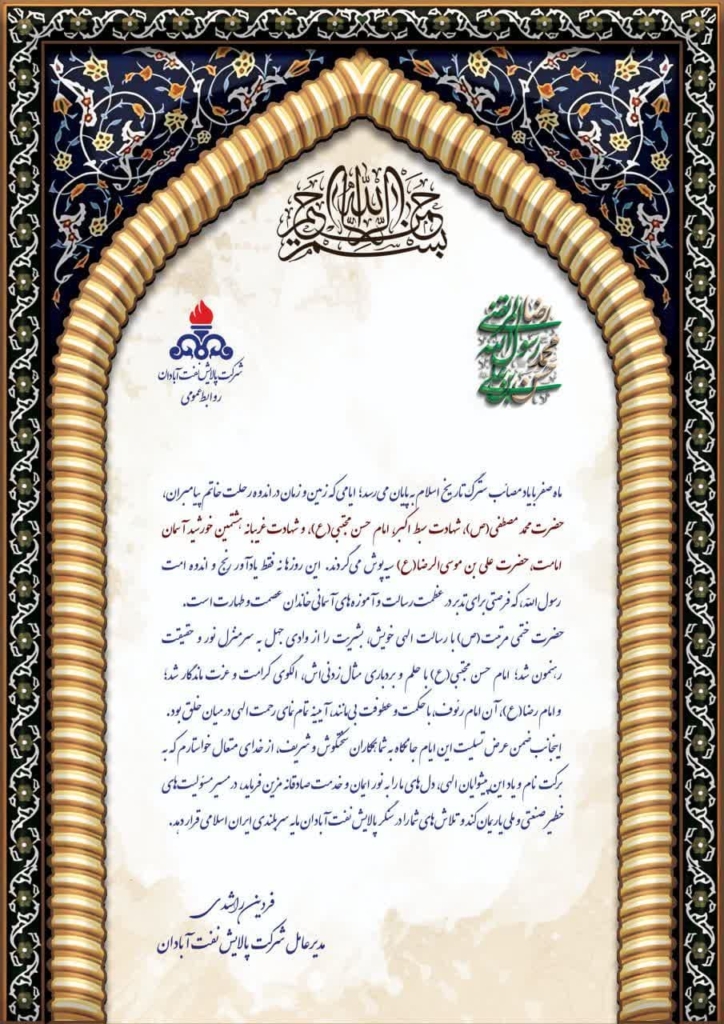 بسم الله الرحمن الرحیم
شرکت پالایش نفت آبادان
روابط عمومی
رسول الله
ماه صفر با یاد مصائب سترگ تاریخ اسلام به پایان می‌رسد؛ ایامی که زمین و زمان در اندوه رحلت خاتم پیامبران،
حضرت محمد مصطفی (ص)، شهادت سبط اکبر، امام حسن مجتبی (ع)، و شهادت غریبانه هشتمین خورشید آسمان
امامت، حضرت علی بن موسی الرضا (ع) سیه‌پوش می‌گردند. این روزها نه فقط یادآور رنج و اندوه امت
رسول الله، که فرصتی برای تدبر در عظمت رسالت و آموزه‌های آسمانی خاندان عصمت و طهارت است.
حضرت ختمی مرتبت (ص) با رسالت الهی خویش، بشریت را از وادی جهل به سرمنزل نور و حقیقت
رهنمون شد؛ امام حسن مجتبی (ع) با حلم و بردباری مثال زدنی‌اش، الگوی کرامت و عزت ماندگار شد؛
و امام رضا (ع)، آن امام رئوف، با حکمت و عطوفت بی‌مانند، آیینه تمام نمای رحمت الهی در میان خلق بود.
اینجانب ضمن عرض تسلیت این ایام جانکاه به شما همکاران سختکوش و شریف، از خدای متعال خواستارم که به
برکت نام و یاد این پیشوایان الهی، دل‌های ما را به نور ایمان و خدمت صادقانه مزین فرماید، در مسیر مسئولیت‌های
خطیر صنعتی و ملی یاریمان کند و تلاش‌های شما را در سنگر پالایش نفت آبادان مایه سربلندی ایران اسلامی قرار دهد.
فردین راشدی
مدیرعامل شرکت پالایش نفت آبادان